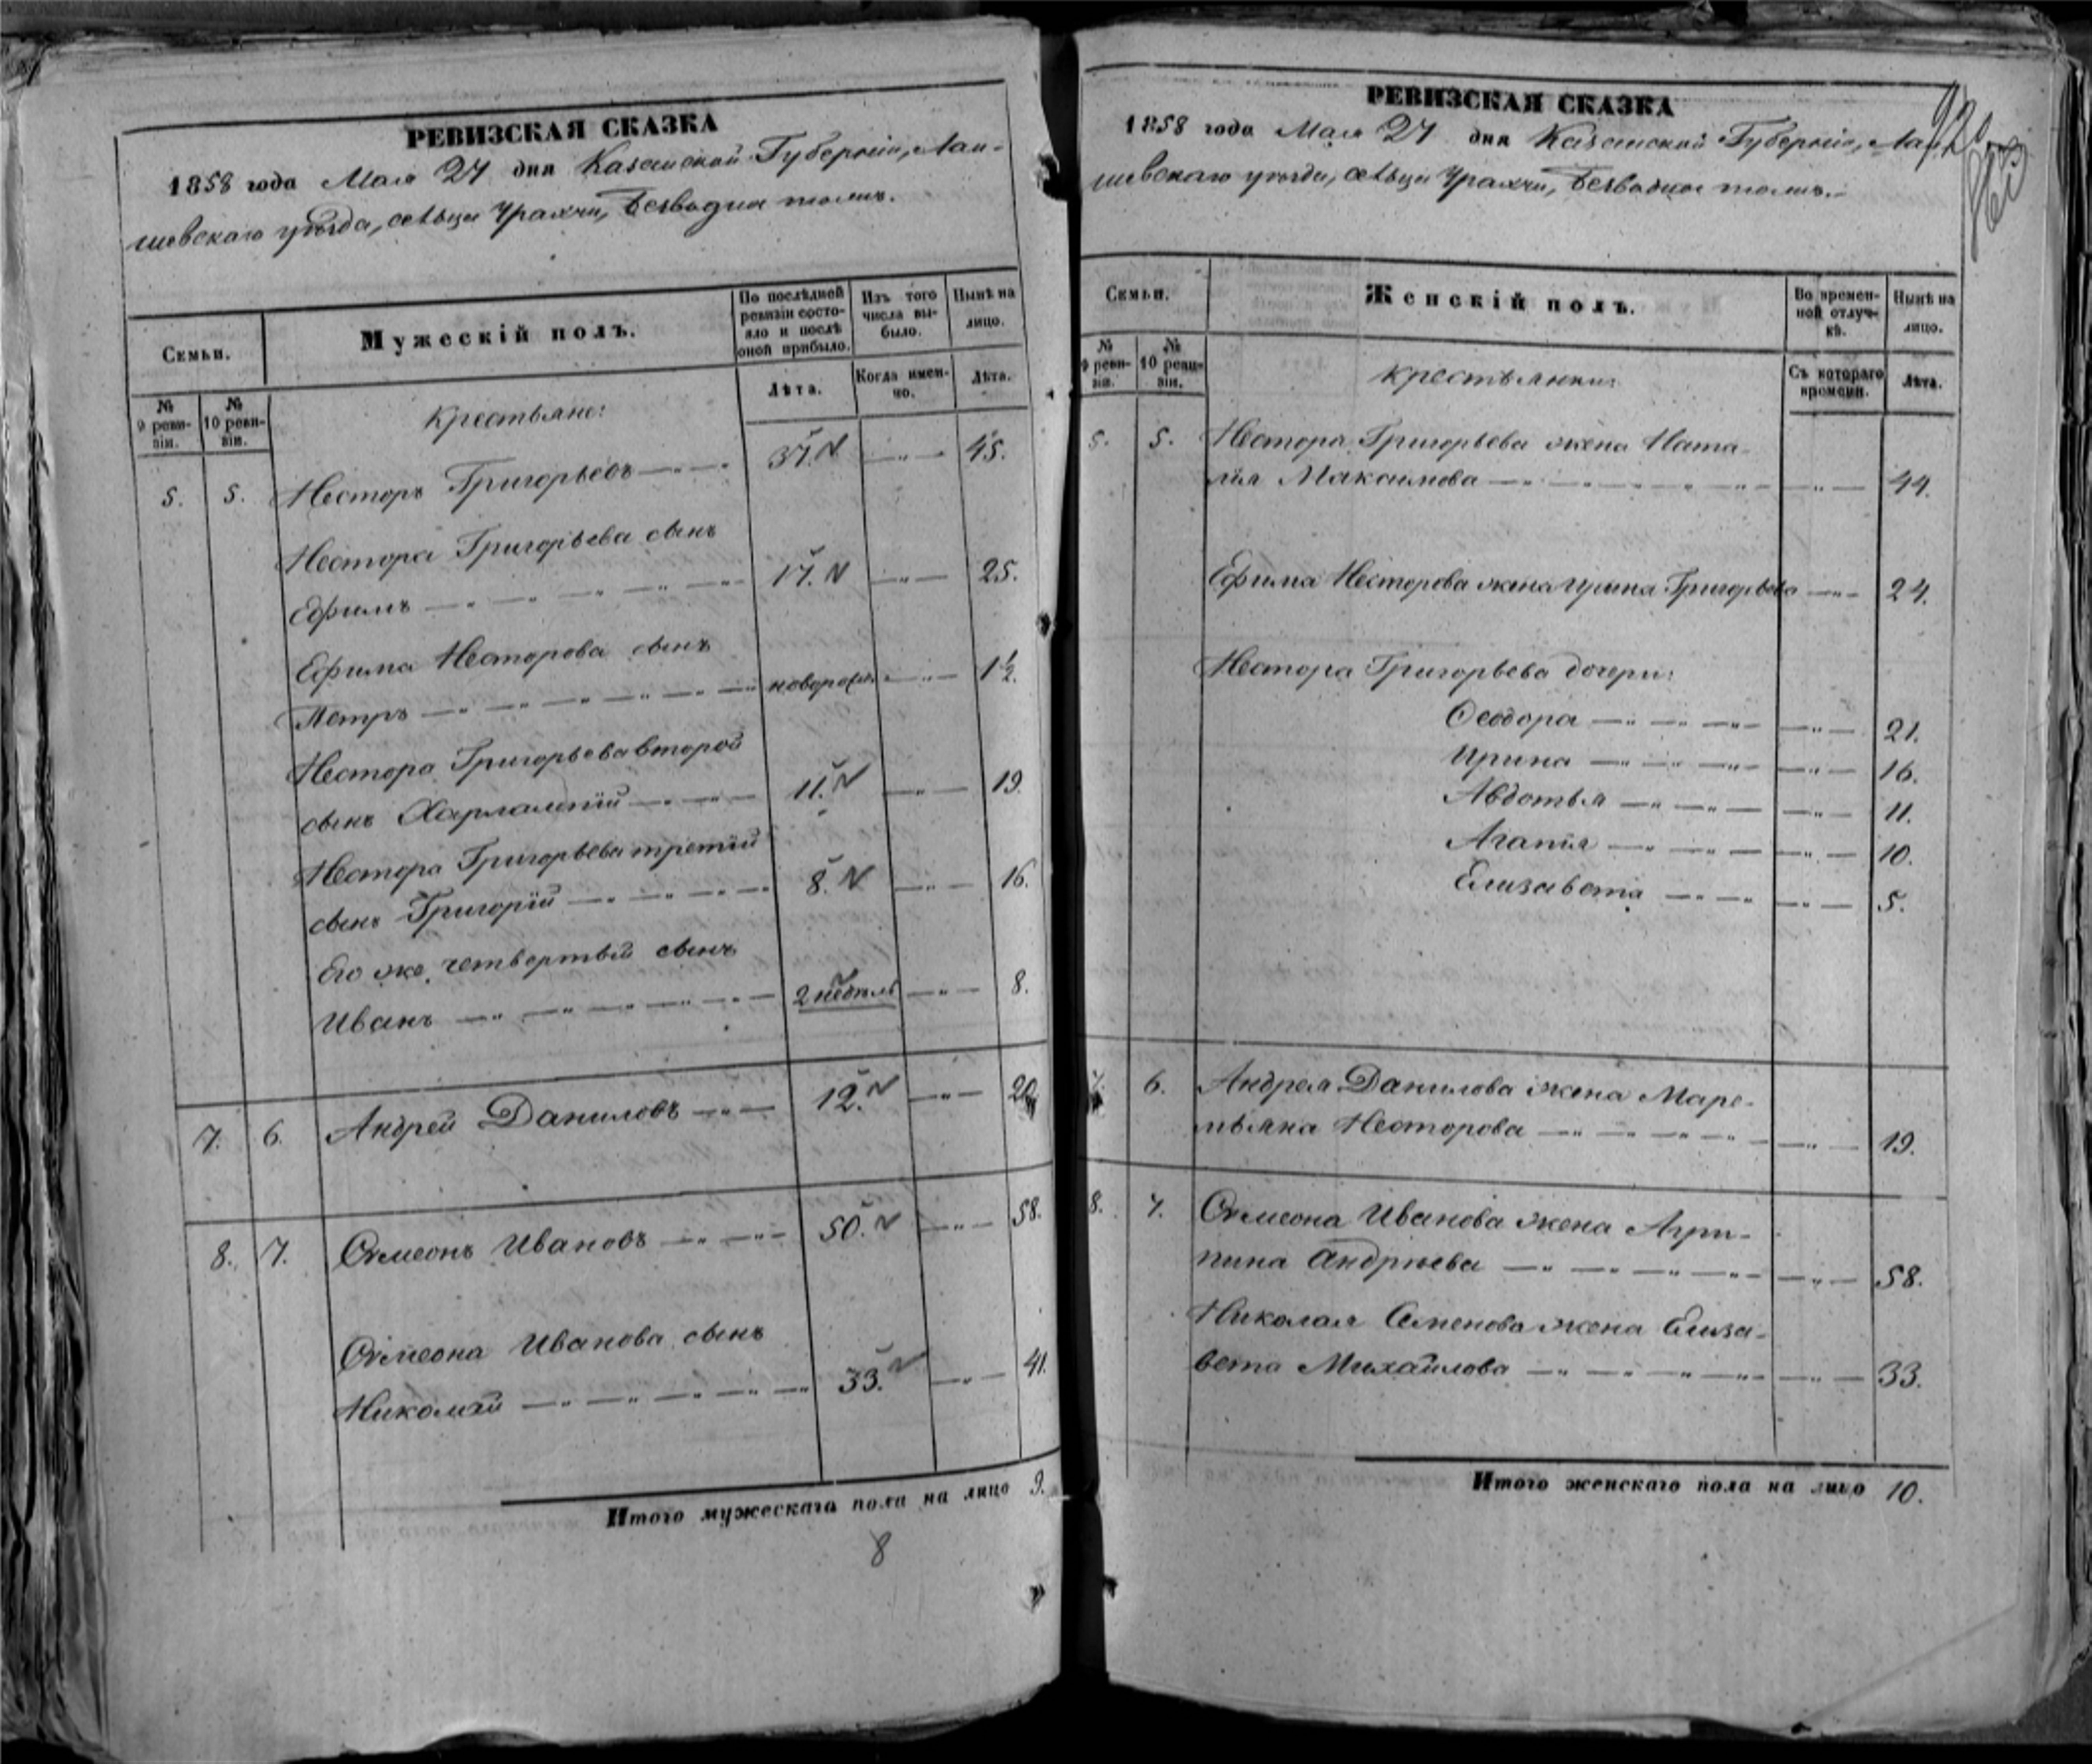 РЕВИЗСКАЯ СКАЗКА
1858 года Мая 27 дня Казанской Губерніи, Лаи-
шевскаго уѣзда, сельца Урахчи, Безводна тожъ.
Семьи.
Мужескій полъ.
По послѣдней ревизіи состо-яло и послѣ оной прибыло.
Изъ того числа вы-было.
Нынѣ на лицо.
№ 9 реви-зіи.
№ 10 реви-зіи.
Крестьяне:
Лѣта.
Когда имен-но.
Лѣта.
5. 5. Несторъ Григорьевъ 37. 45.
Нестора Григорьева сынъ
Ефимъ 17. 25.
Ефима Несторова сынъ
Петръ новорожд. 1½.
Нестора Григорьева второй
сынъ Харлампій 11. 19.
Нестора Григорьева третій
сынъ Григорій 8. 16.
Его же четвертый сынъ
Иванъ 2 недѣль 8.
7. 6. Андрей Даниловъ 12. 20.
8. 7. Симеонъ Ивановъ 50. 58.
Симеона Иванова сынъ
Николай 33. 41.
Итого мужескаго пола на лицо 9.
8
РЕВИЗСКАЯ СКАЗКА
1858 года Мая 27 дня Казанской Губерніи, Лаи-
шевскаго уѣзда, сельца Урахчи, Безводное тожъ.
Семьи.
Женскій полъ.
Во времен-ной отлуч-кѣ.
Нынѣ на лицо.
№ 9 реви-зіи.
№ 10 реви-зіи.
Крестьянки:
Съ котораго времени.
Лѣта.
5. 5. Нестора Григорьева жена Ната-
лія Максимова 44.
Ефима Несторова жена Ирина Григорьева 24.
Нестора Григорьева дочери:
Ѳеодора 21.
Ирина 16.
Авдотья 11.
Агапія 10.
Елизавета 5.
7. 6. Андрея Данилова жена Маре-
мьяна Несторова 19.
8. 7. Симеона Иванова жена Агри-
пина Андрѣева 58.
Николая Семенова жена Елиза-
вета Михайлова 33.
Итого женскаго пола на лицо 10.